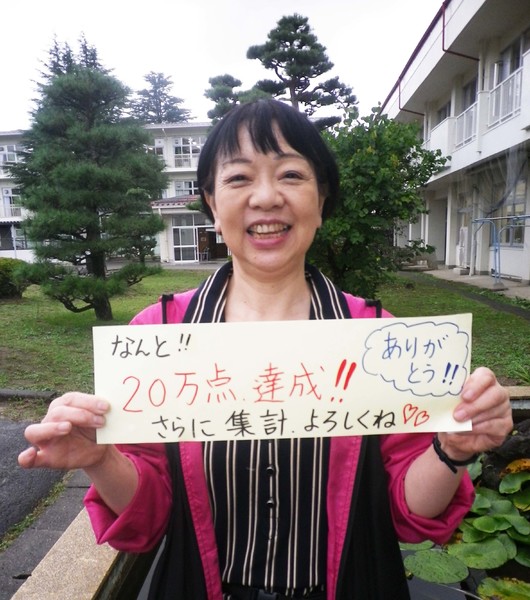 なんと!!
20万点、達成!!
ありが
とう!!
さらに 集計、よろしくね♡♡